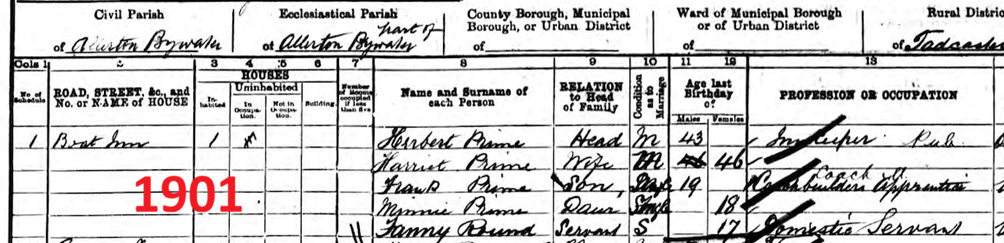 Civil Parish Ecclesiastical Parish County Borough, Municipal Borough, or Urban District Ward of Municipal Borough or of Urban District Rural Distric
of Allerton Bywater of Allerton Bywater part of of of of Tadcaster
Cols 1 2 3 4 5 6 7 8 9 10 11 12 13
No. of Schedule ROAD, STREET, &c., and No. or NAME of HOUSE HOUSES Inhabited Uninhabited In Occupation. Not in Occupation. Building. Number of Rooms occupied if less than five Name and Surname of each Person RELATION to Head of Family Condition as to Marriage Age last Birthday of Males Females PROFESSION OR OCCUPATION
1 Boat Inn 1 Herbert Prime Head M 43 Innkeeper Pub
Harriet Prime Wife M 46 46
Frank Prime Son 19 Coachbuilders Apprentice Coach
Minnie Prime Daur Single 18
Fanny Round Servant S 17 Domestic Servant
1901